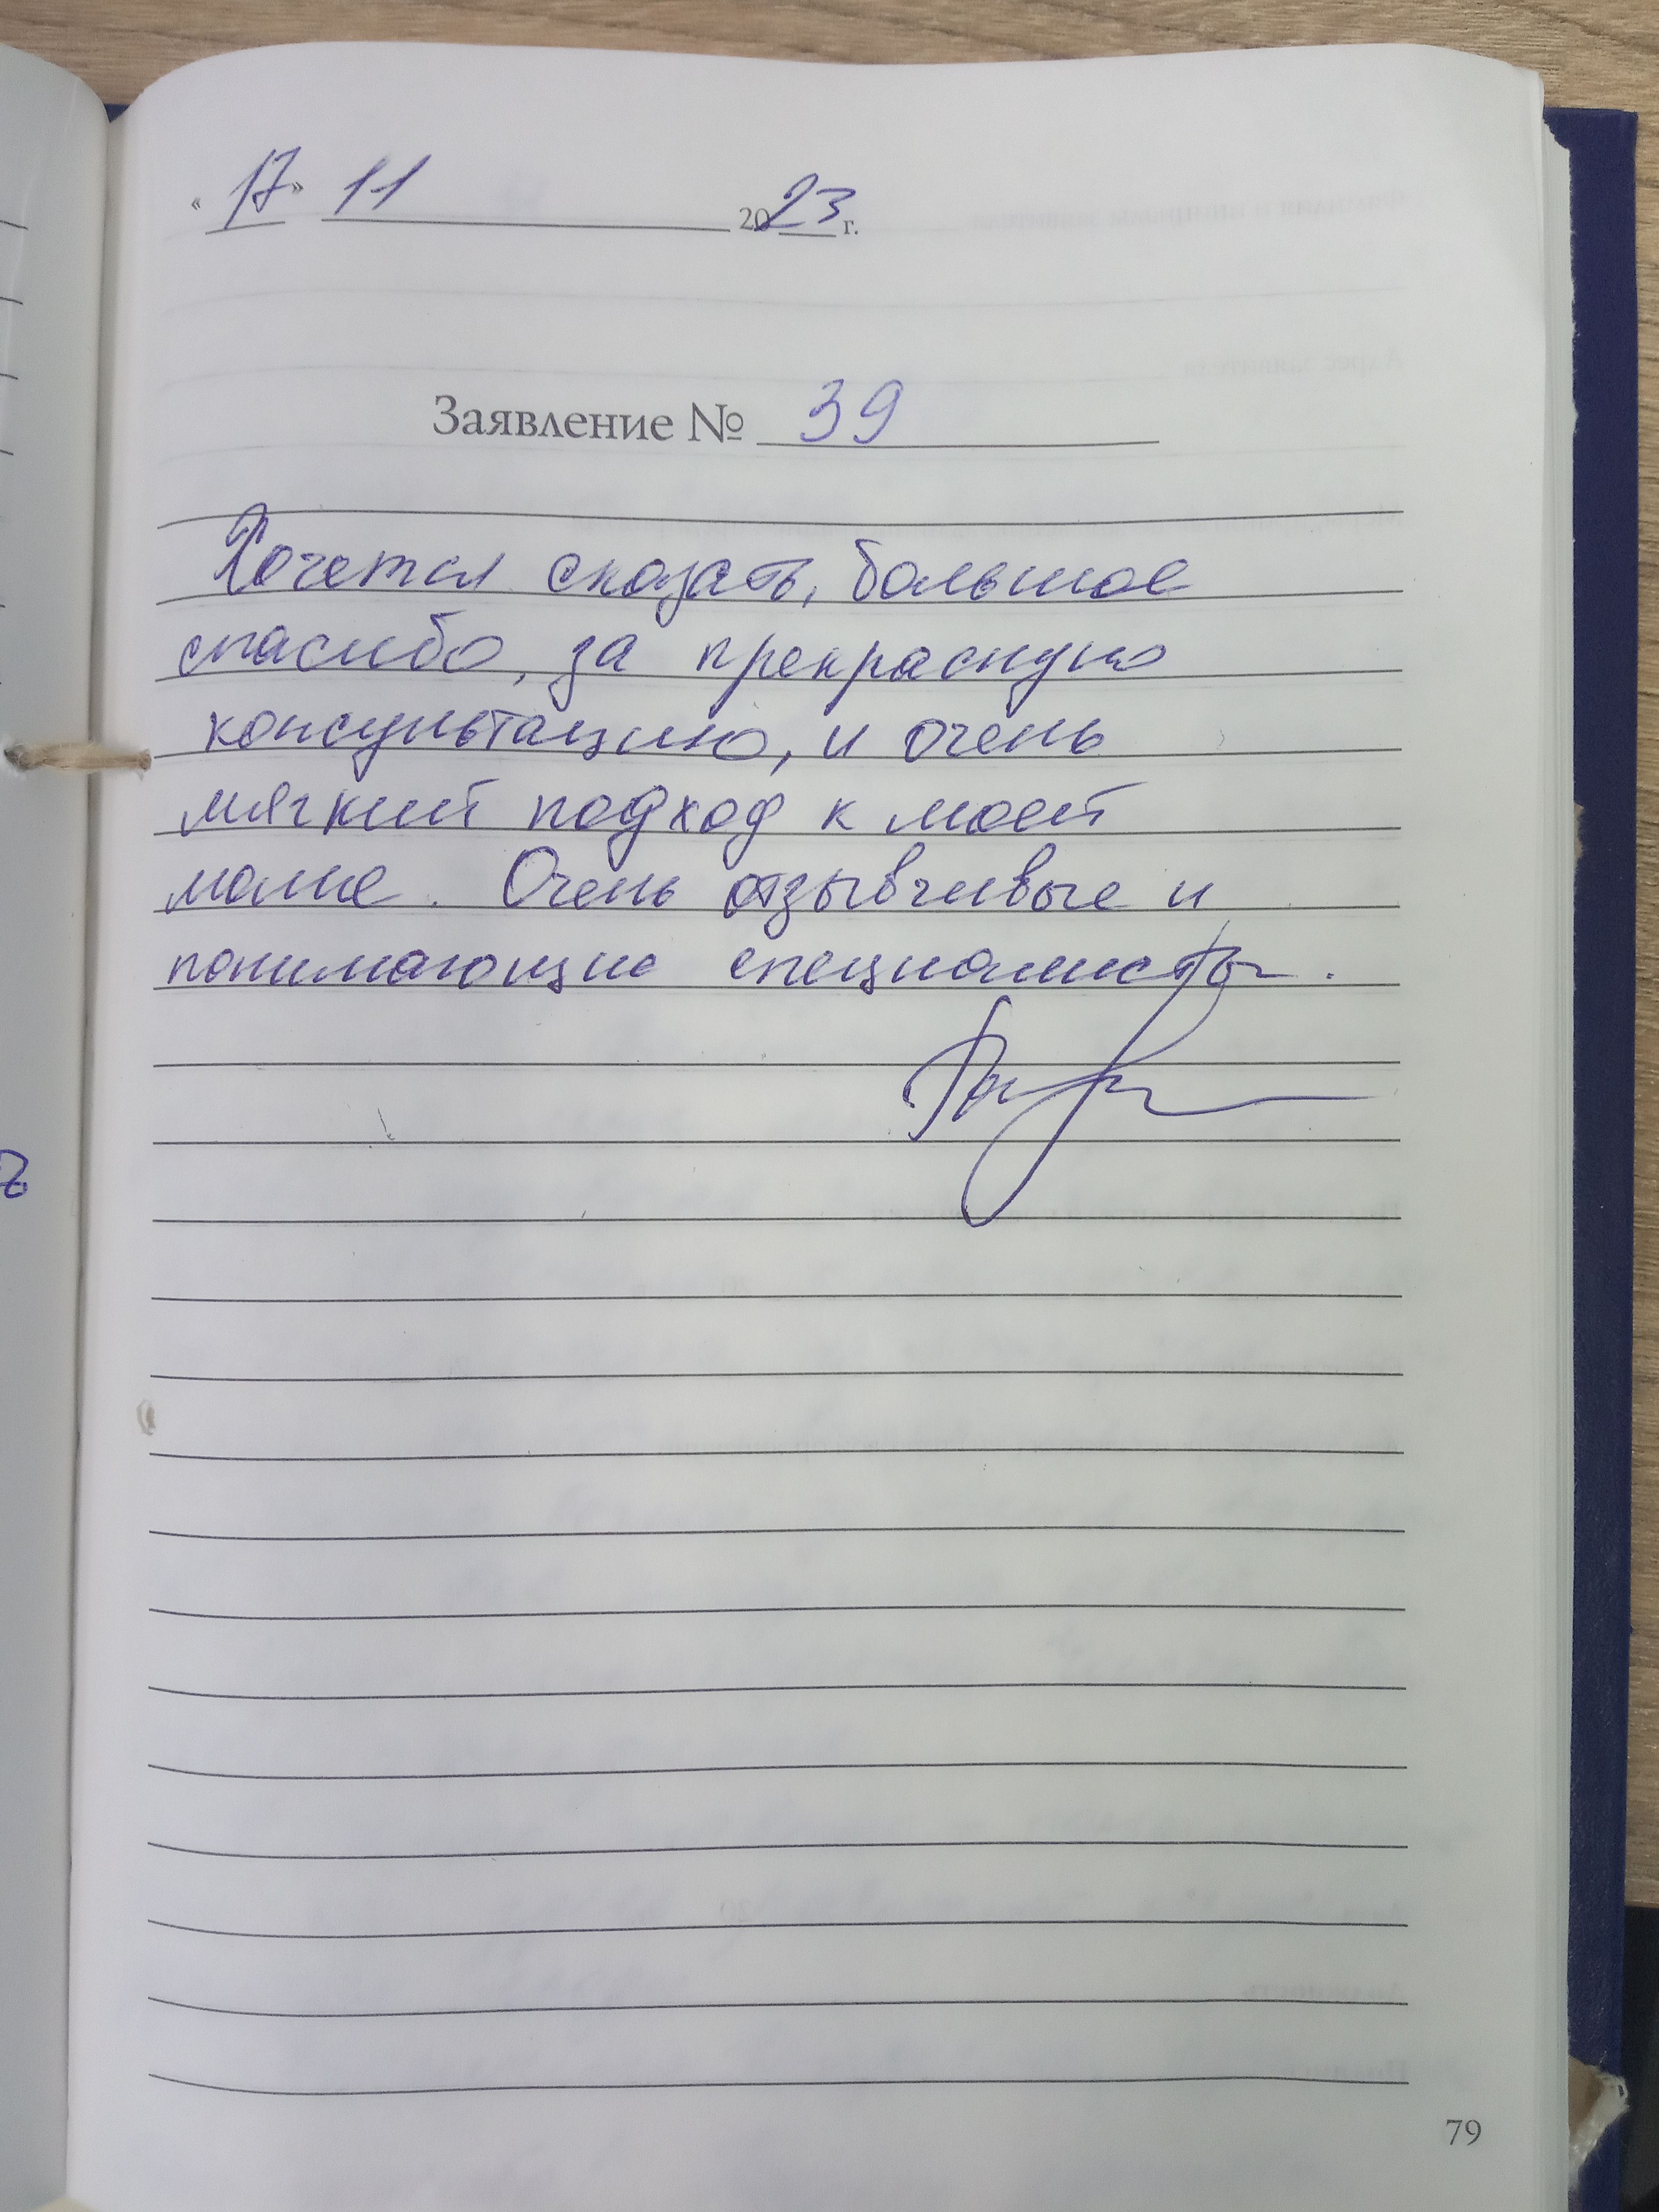 «17» 11 2023 г.
Заявление № 39
Хочется сказать, большое
спасибо, за прекрасную
консультацию, и очень
мягкий подход к моей
маме. Очень отзывчивые и
понимающие специалисты.
79